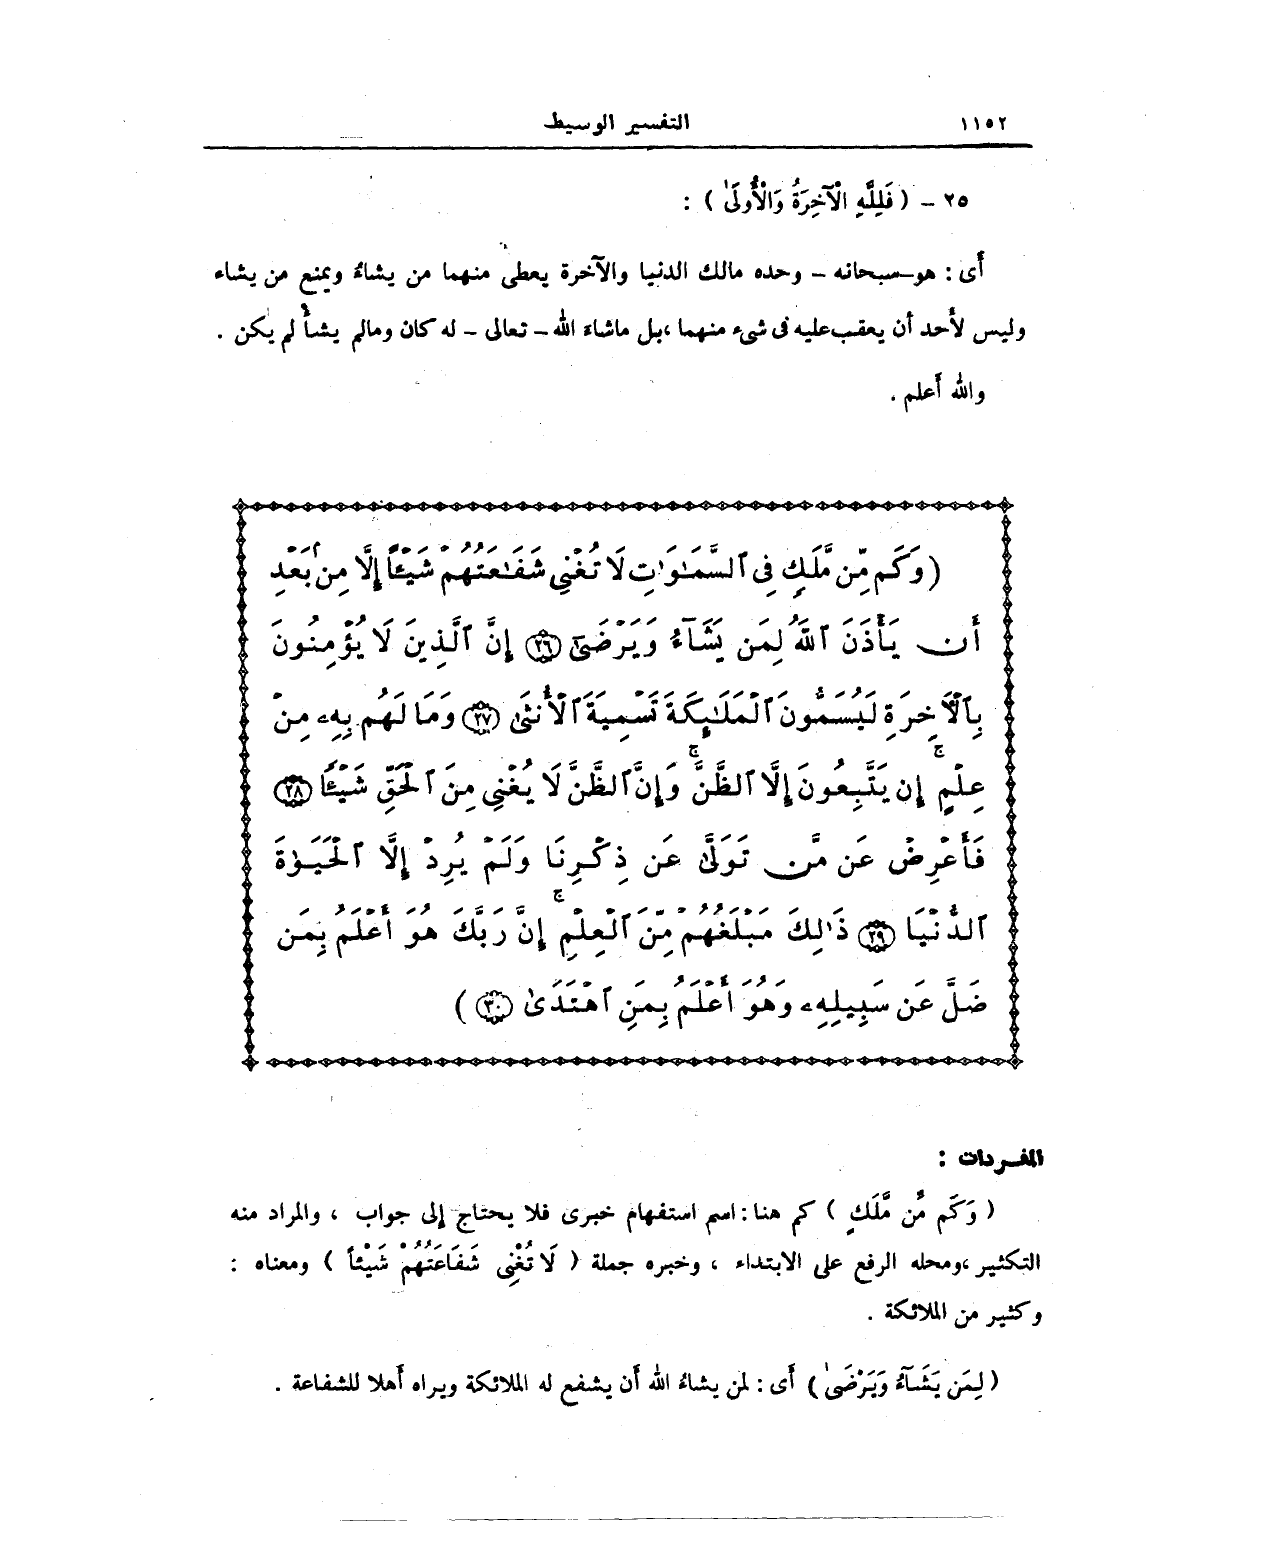 ١١٥٢ التفسير الوسيط
٢٥ – ( فَلِلَّهِ الْآخِرَةُ وَالْأُولَىٰ ) :
أَى : هو–سبحانه – وحده مالك الدنيا والآخرة يعطى منهما من يشاءُ ويمنع من يشاء
وليس لأَحد أن يعقب عليه فى شىء منهما ، بل ماشاءَ الله – تعالى – له كان ومالم يشأْ لم يكن .
والله أَعلم .
( وَكَم مِّن مَّلَكٍ فِى ٱلسَّمَـٰوَٰتِ لَا تُغْنِى شَفَـٰعَتُهُمْ شَيْـًٔا إِلَّا مِنۢ بَعْدِ
أَن يَأْذَنَ ٱللَّهُ لِمَن يَشَآءُ وَيَرْضَىٰٓ ٢٦ إِنَّ ٱلَّذِينَ لَا يُؤْمِنُونَ
بِٱلْأَخِرَةِ لَيُسَمُّونَ ٱلْمَلَـٰٓئِكَةَ تَسْمِيَةَ ٱلْأُنثَىٰ ٢٧ وَمَا لَهُم بِهِۦ مِنْ
عِلْمٍ ۖ إِن يَتَّبِعُونَ إِلَّا ٱلظَّنَّ ۖ وَإِنَّ ٱلظَّنَّ لَا يُغْنِى مِنَ ٱلْحَقِّ شَيْـًٔا ٢٨
فَأَعْرِضْ عَن مَّن تَوَلَّىٰ عَن ذِكْرِنَا وَلَمْ يُرِدْ إِلَّا ٱلْحَيَوٰةَ
ٱلدُّنْيَا ٢٩ ذَٰلِكَ مَبْلَغُهُم مِّنَ ٱلْعِلْمِ ۚ إِنَّ رَبَّكَ هُوَ أَعْلَمُ بِمَن
ضَلَّ عَن سَبِيلِهِۦ وَهُوَ أَعْلَمُ بِمَنِ ٱهْتَدَىٰ ٣٠ )
المفـردات :
( وَكَم مِّن مَّلَكٍ ) كم هنا : اسم استفهام خبرى فلا يحتاج إلى جواب ، والمراد منه
التكثير ، ومحله الرفع على الابتداء ، وخبره جملة ( لَا تُغْنِى شَفَاعَتُهُمْ شَيْئاً ) ومعناه :
وكثير من الملائكة .
( لِمَن يَشَآءُ وَيَرْضَىٰ ) أَى : لمن يشاءُ الله أَن يشفع له الملائكة ويراه أَهلا للشفاعة .